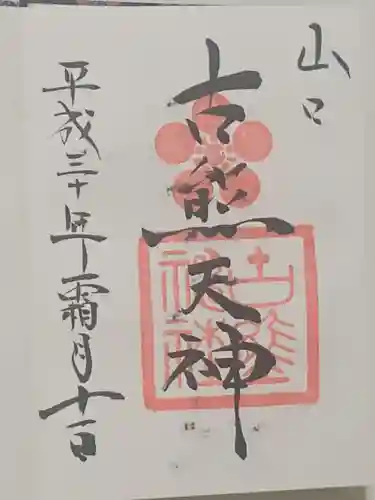 山口
古熊天神
平成三十年霜月十一日
古熊神社